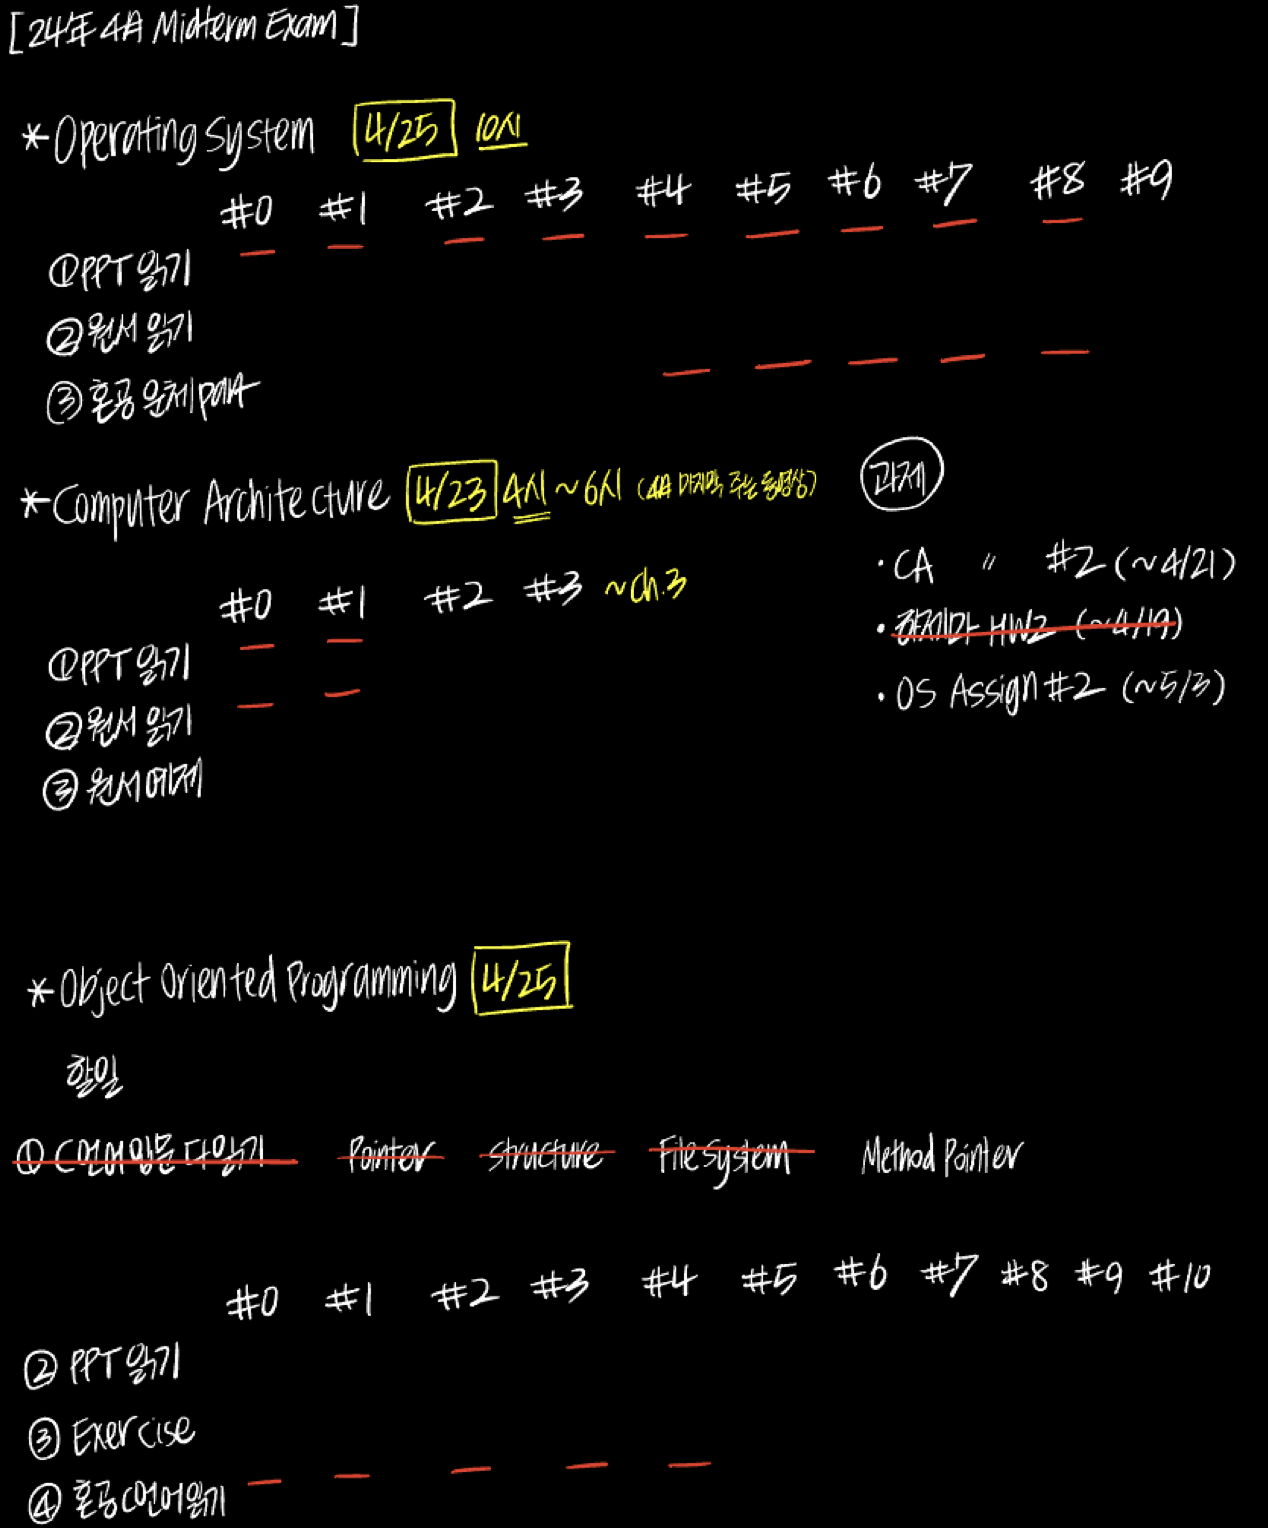 [24年 4月 Midterm Exam]
*Operating System 4/25 10시
#0 #1 #2 #3 #4 #5 #6 #7 #8 #9
①PPT 읽기
②원서 읽기
③혼공 운체 part
*Computer Architecture 4/23 4시~6시 (4月 마지막 주는 동영상)
#0 #1 #2 #3 ~Ch.3
①PPT 읽기
②원서 읽기
③원서 예제
과제
· CA 〃 #2 (~4/21)
· HW2 (~4/19)
· OS Assign #2 (~5/3)
*Object Oriented Programming 4/25
할일
① C언어 입문 다 읽기 Pointer structure File system Method Pointer
#0 #1 #2 #3 #4 #5 #6 #7 #8 #9 #10
② PPT 읽기
③ Exercise
④ 혼공 C언어 읽기